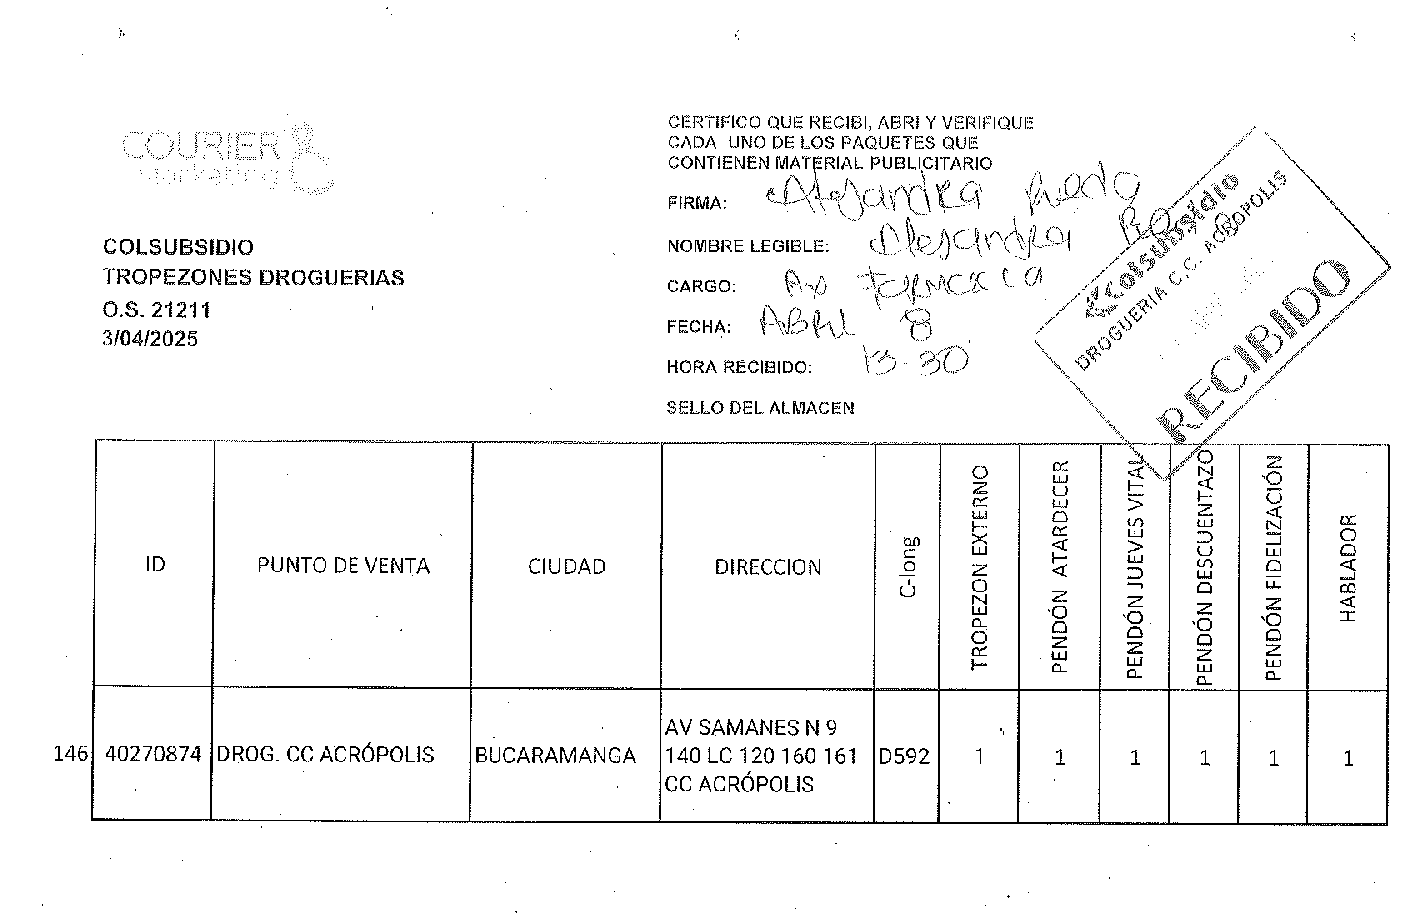 COURIER
Marketing
COLSUBSIDIO
TROPEZONES DROGUERIAS
O.S. 21211
3/04/2025
CERTIFICO QUE RECIBI, ABRI Y VERIFIQUE
CADA UNO DE LOS PAQUETES QUE
CONTIENEN MATERIAL PUBLICITARIO
FIRMA: Alejandra Rueda
NOMBRE LEGIBLE: Alejandra
CARGO: Ax Farmacia
FECHA: ABRIL 8
HORA RECIBIDO: 13-30
SELLO DEL ALMACEN
Colsubsidio
DROGUERIA C.C. ACROPOLIS
RECIBIDO
ID PUNTO DE VENTA CIUDAD DIRECCION C-long TROPEZON EXTERNO PENDÓN ATARDECER PENDÓN JUEVES VITAL PENDÓN DESCUENTAZO PENDÓN FIDELIZACIÓN HABLADOR
146 40270874 DROG. CC ACRÓPOLIS BUCARAMANGA AV SAMANES N 9
140 LC 120 160 161 D592 1 1 1 1 1 1
CC ACRÓPOLIS